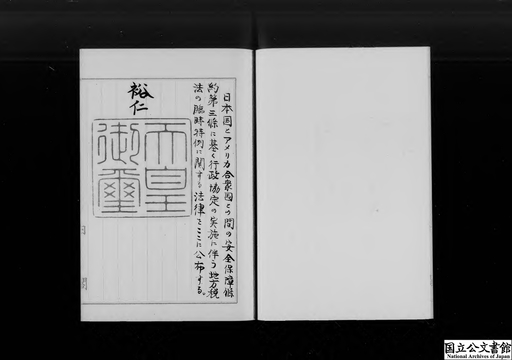 日本国とアメリカ合衆国との間の安全保障條
約第三條に基く行政協定の実施に伴う地方税
法の臨時特例に関する法律をここに公布する。
裕仁
天皇
御璽
国立公文書館
National Archives of Japan